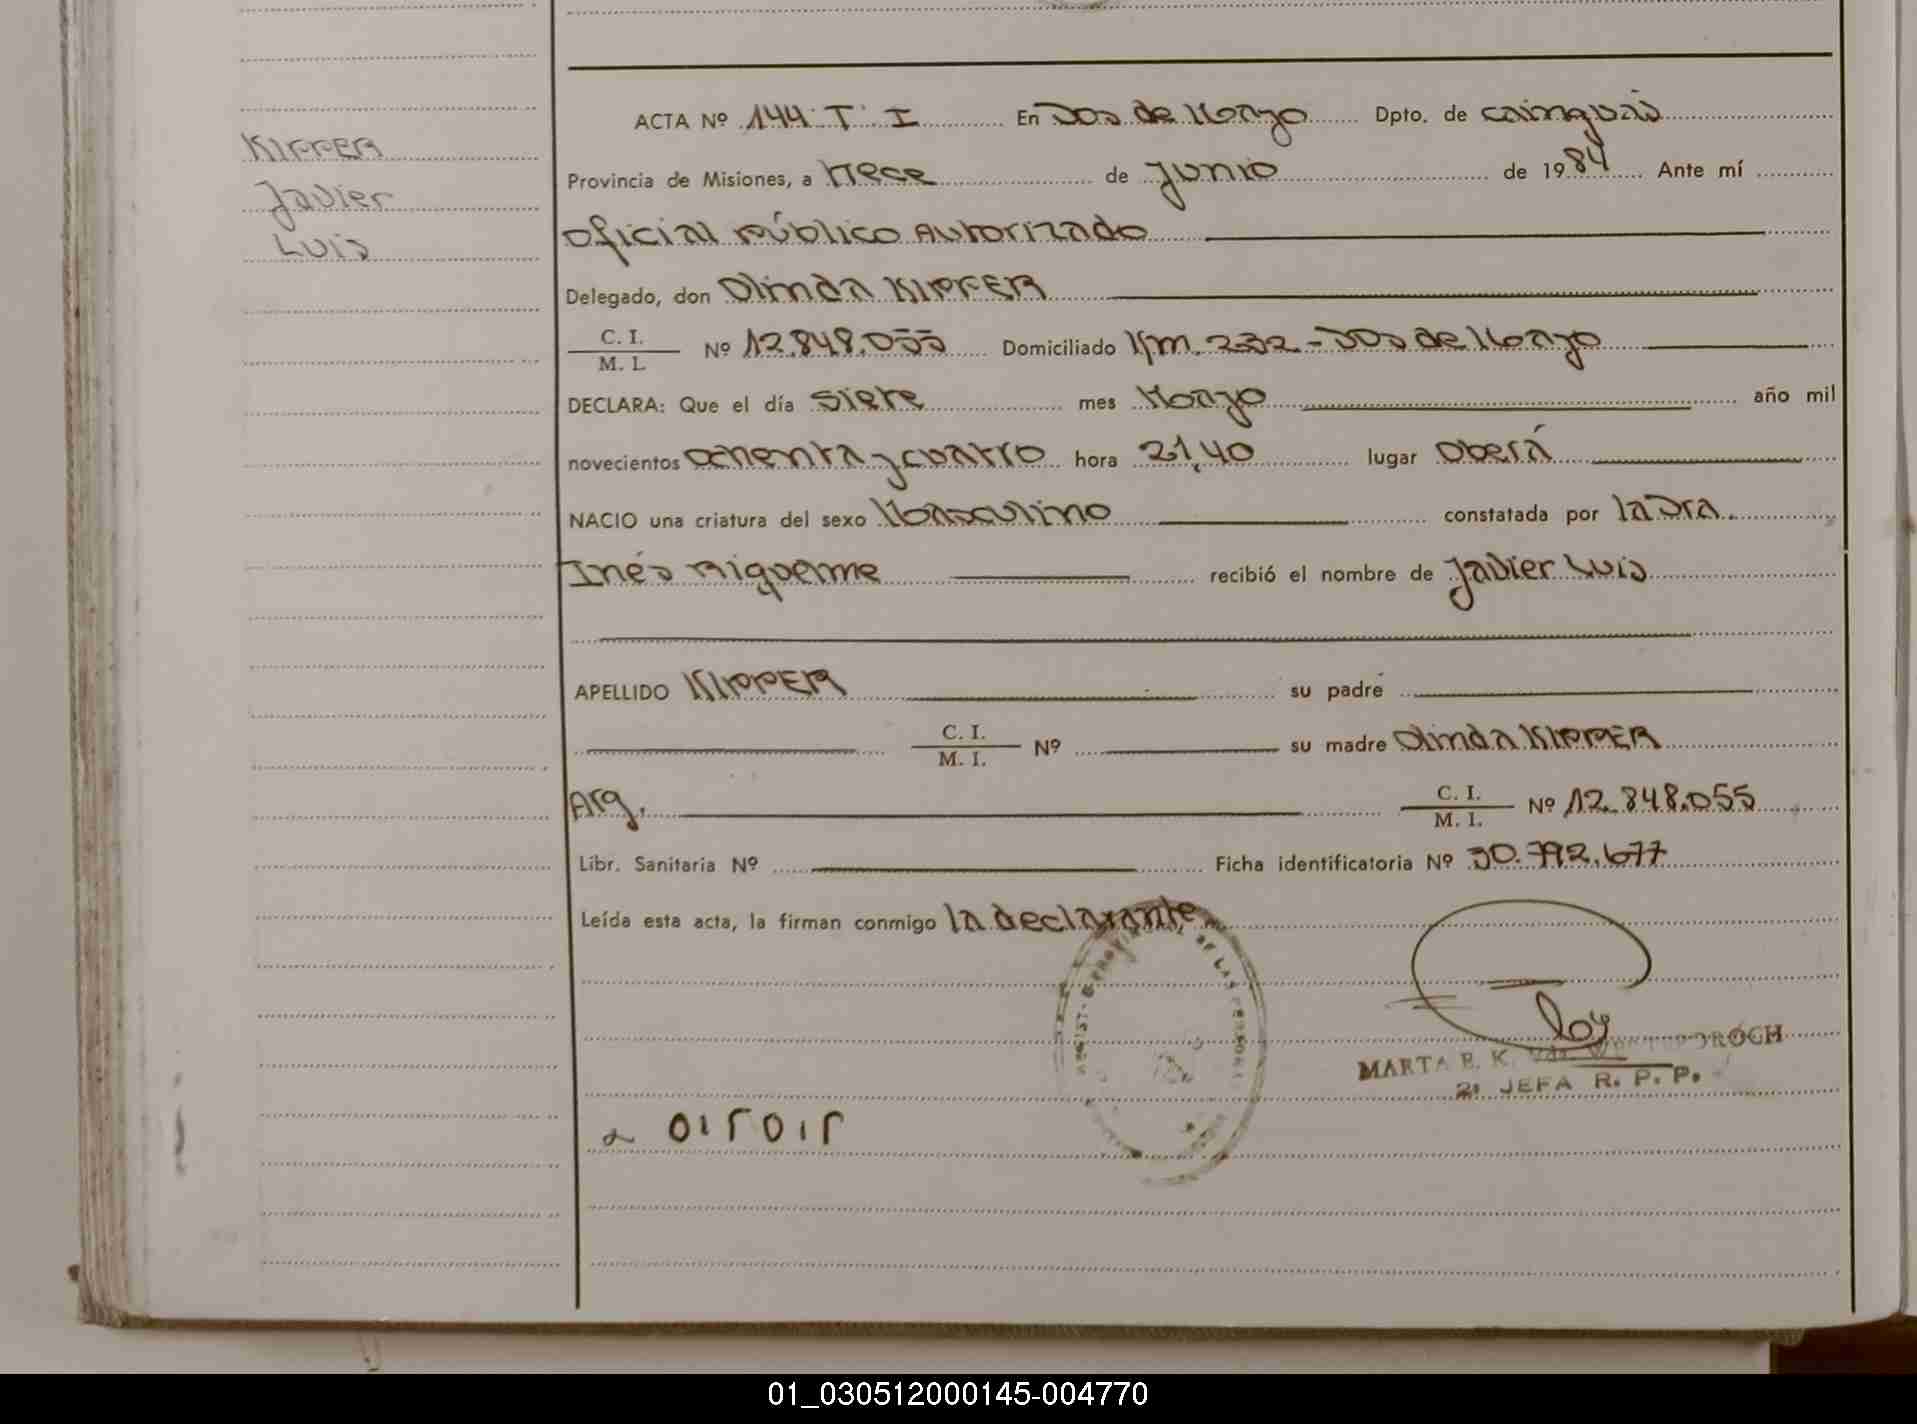 KIPPER
Javier
Luis
ACTA Nº 144 T I En Dos de Mayo Dpto. de cainguás
Provincia de Misiones, a trece de junio de 1984 Ante mí
oficial público Autorizado
Delegado, don Olinda KIPPER
C. I.
M. I. Nº 12.848.055 Domiciliado Km. 232 - Dos de Mayo
DECLARA: Que el día siete mes Mayo año mil
novecientos ochenta y cuatro hora 21,40 lugar Oberá
NACIO una criatura del sexo Masculino constatada por la Dra.
Inés Riquelme recibió el nombre de Javier Luis
APELLIDO KIPPER su padre
C. I.
M. I. Nº su madre Olinda KIPPER
Arg. C. I.
M. I. Nº 12.848.055
Libr. Sanitaria Nº Ficha identificatoria Nº 30.792.677
Leída esta acta, la firman conmigo la declarante,
PROVINCIAL DE LAS PERSONAS
MARTA E. K. Vda.
2ª JEFA R. P. P.
01_030512000145-004770